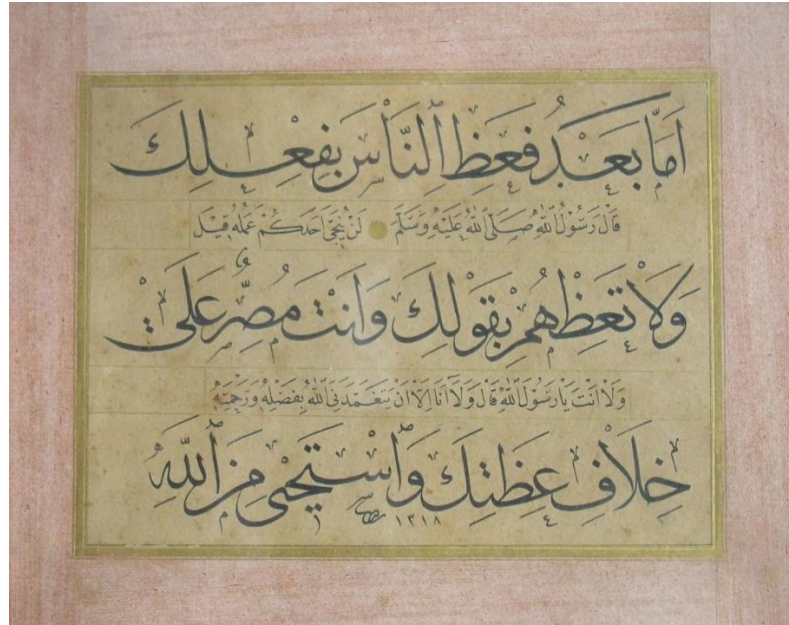 اَمَّا بَعْدُ فَعِظِ النَّاسَ بِفِعْلِكَ
قَالَ رَسُولُ اللّٰهِ صَلَّى اللّٰهُ عَلَيْهِ وَسَلَّمَ لَنْ يُنَجِّىَ اَحَدَكُمْ عَمَلُهُ قِيلَ
وَلَا تَعِظْهُمْ بِقَوْلِكَ وَاَنْتَ مُصِرٌّ عَلٰى
وَلَا اَنْتَ يَا رَسُولَ اللّٰهِ قَالَ وَلَا اَنَا اِلَّا اَنْ يَتَغَمَّدَنِىَ اللّٰهُ بِفَضْلِهِ وَرَحْمَتِهِ
خِلَافِ عِظَتِكَ وَاسْتَحْيِى مِنَ اللّٰهِ
١٣١٨